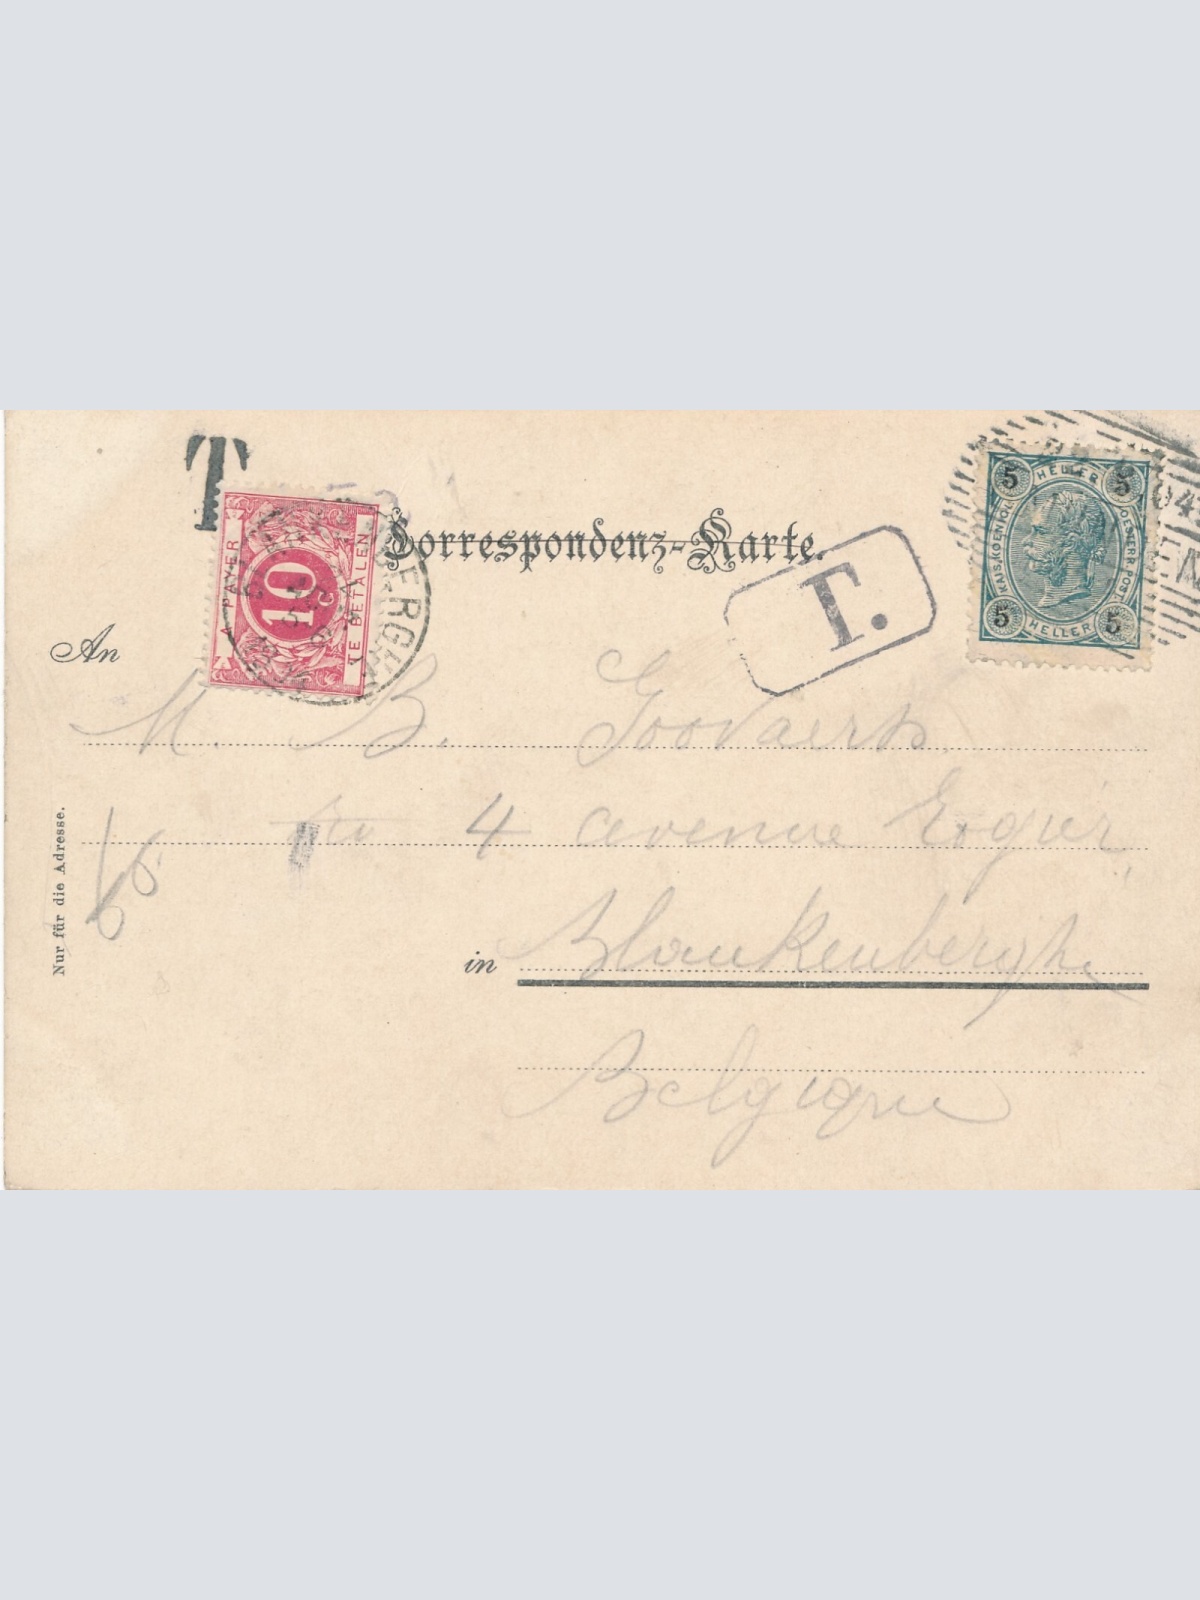 T
Correspondenz-Karte.
T.
5 HELLER 5
KAIS. KOENIGL. OESTERR. POST.
5 HELLER 5
04
A PAYER
10 C
TE BETALEN
An
M. B. Goovaerts
4 avenue Rogier
in Blankenberghe
Belgique
Nur für die Adresse.